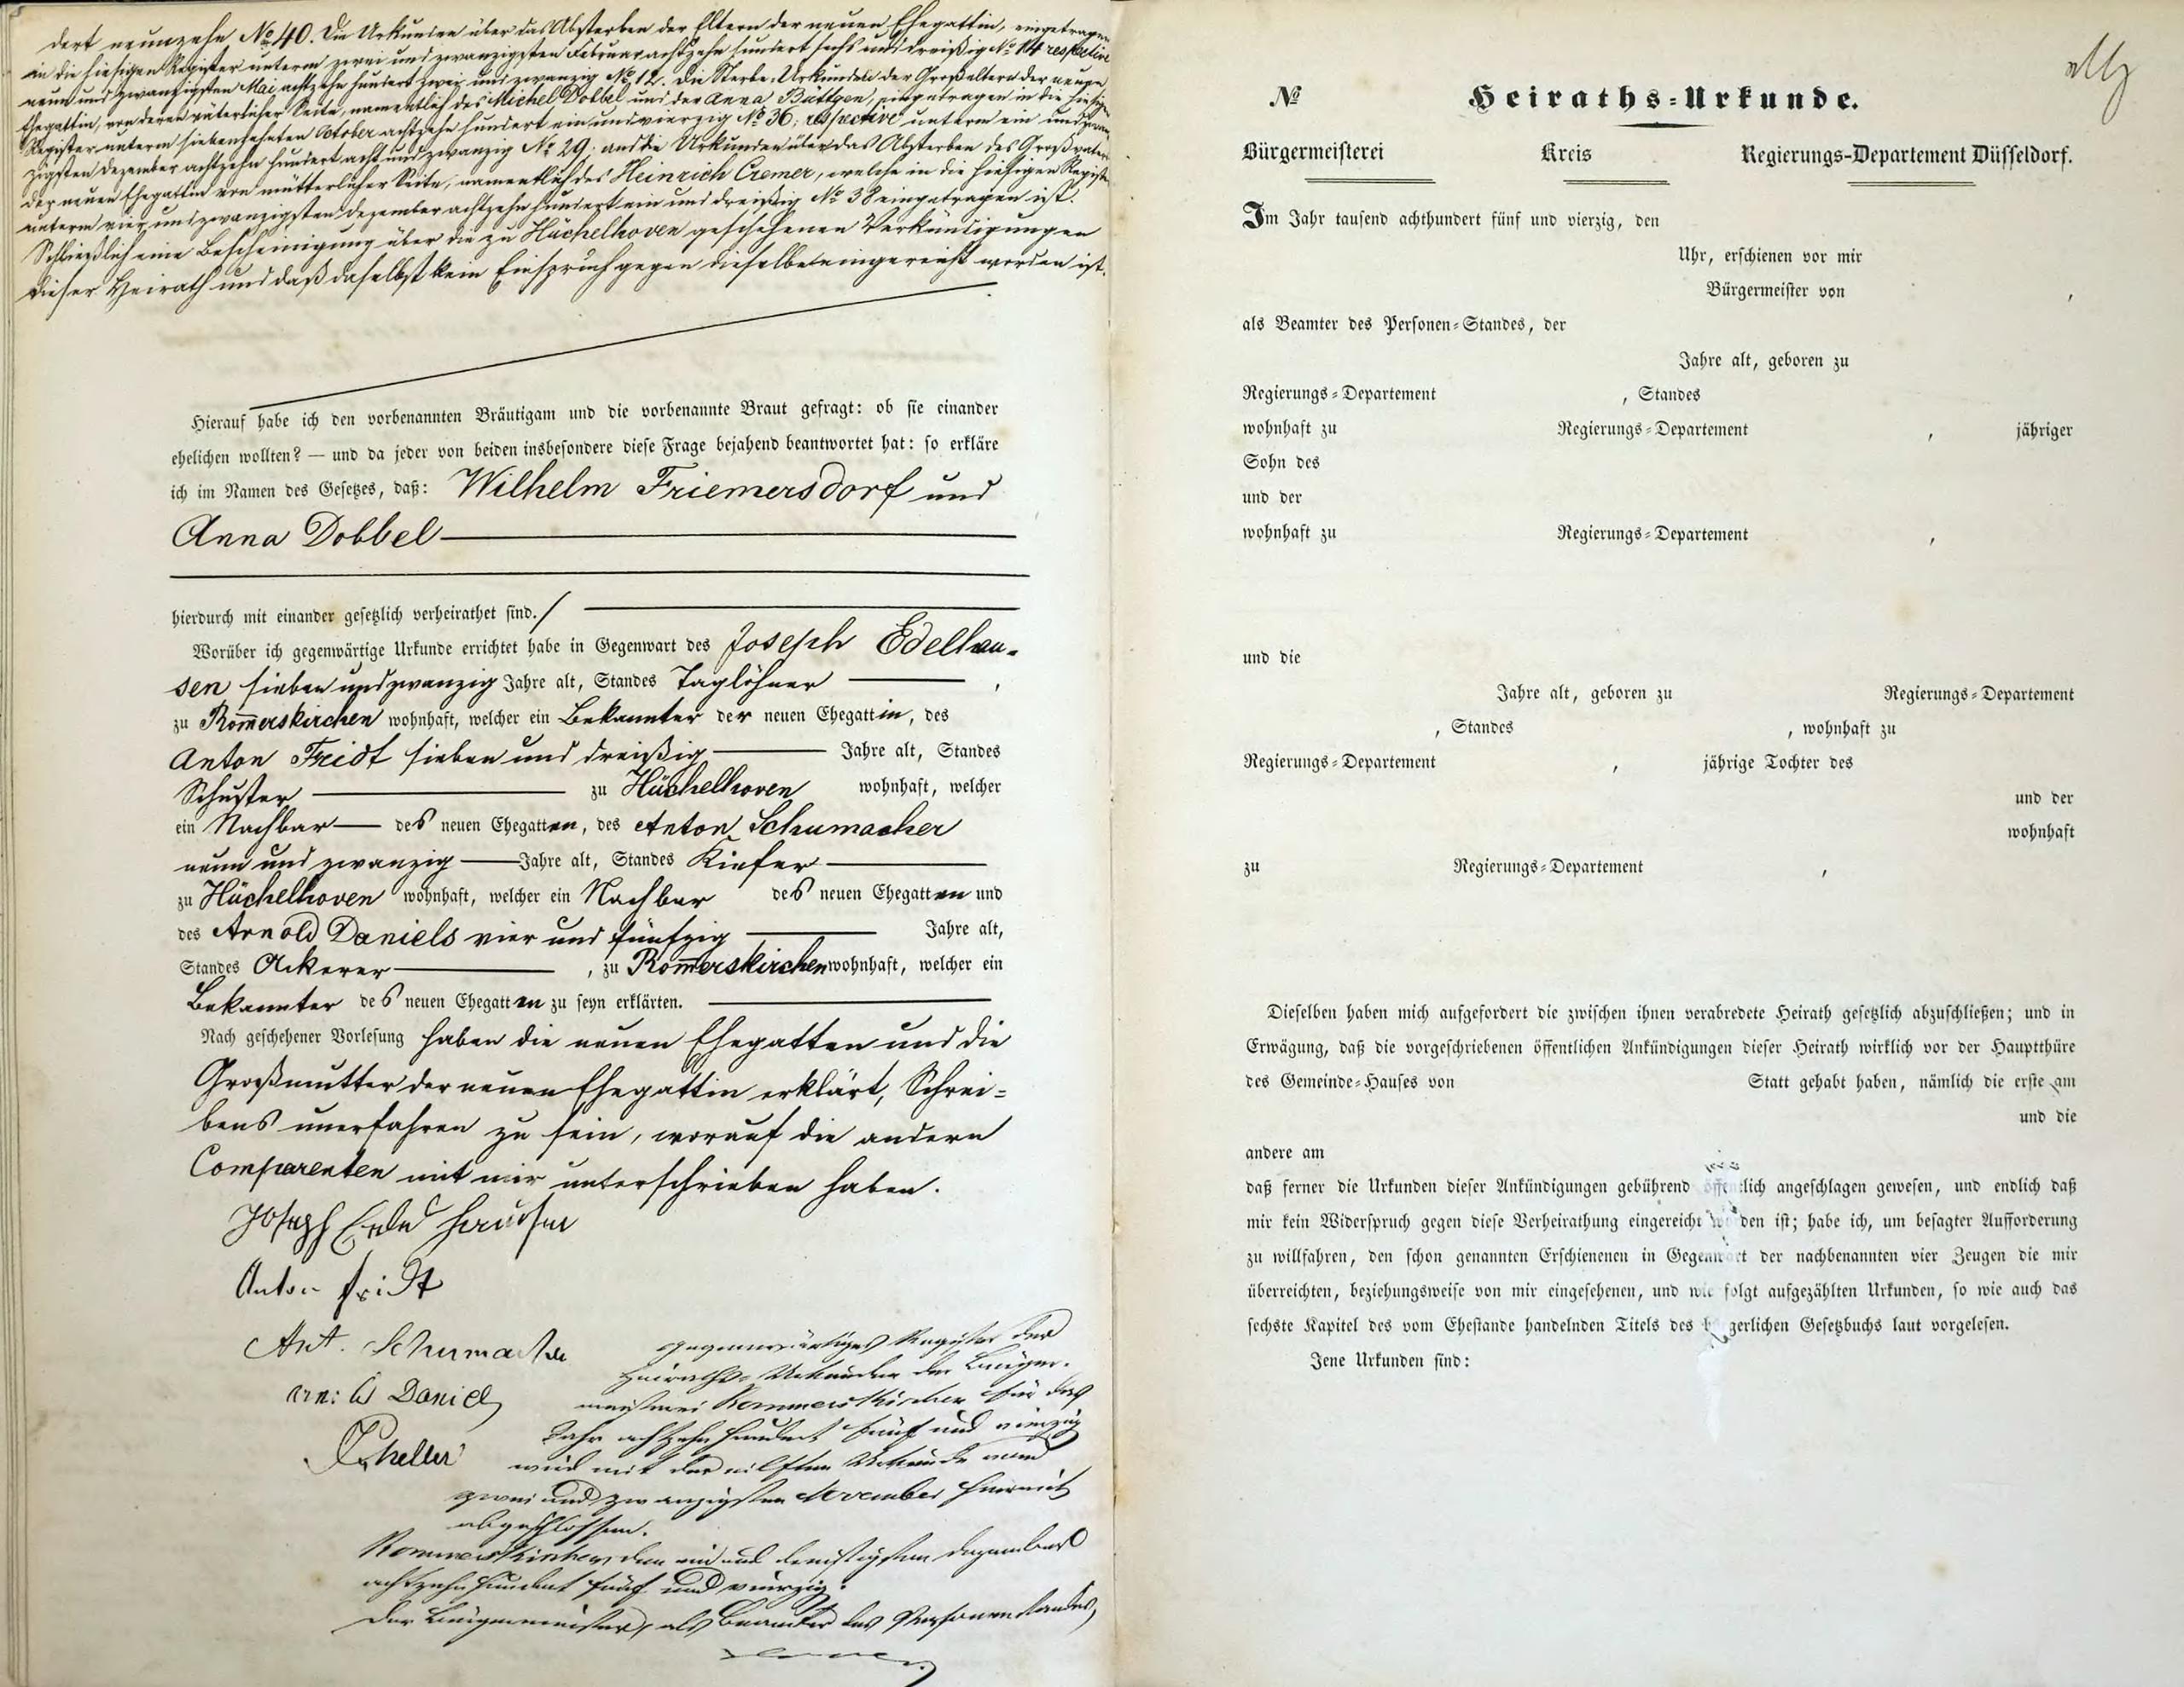 dert neunzehn No 40. Die Urkunden über das Absterben der Eltern der neuen Ehegattin, eingetragen
in die hiesigen Register unterm zwei und zwanzigsten Februar achtzehn hundert sechs und dreißig No 14 respective
neun und zwanzigsten Mai achtzehn hundert zwei und zwanzig No 12. Die Sterbe-Urkunden der Großeltern der neuen
Ehegattin, von deren väterlicher Seite, namentlich des Michel Dobbel und der Anna Büttgen, eingetragen in die hiesigen
Register unterm siebenzehnten October achtzehn hundert ein und vierzig No 36, respective unterm ein und zwan-
zigsten Dezember achtzehn hundert acht und zwanzig No 29; und die Urkunden über das Absterben des Großvaters
der neuen Ehegattin von mütterlicher Seite, namentlich des Heinrich Cremer, welche in die hiesigen Register
unterm vier und zwanzigsten Dezember achtzehn hundert ein und dreißig No 38 eingetragen ist.
Schließlich eine Bescheinigung über die zu Hüchelhoven geschehenen Verkündigungen
dieser Heirath und daß daselbst kein Einspruch gegen dieselbe eingereicht worden ist.
Hierauf habe ich den vorbenannten Bräutigam und die vorbenannte Braut gefragt: ob sie einander
ehelichen wollten? — und da jeder von beiden insbesondere diese Frage bejahend beantwortet hat: so erkläre
ich im Namen des Gesetzes, daß: Wilhelm Friemersdorf und
Anna Dobbel
hierdurch mit einander gesetzlich verheirathet sind./
Worüber ich gegenwärtige Urkunde errichtet habe in Gegenwart des Joseph Edelhau-
sen sieben und zwanzig Jahre alt, Standes Taglöhner ,
zu Rom̅erskirchen wohnhaft, welcher ein Bekannter der neuen Ehegattin, des
Anton Fridt sieben und dreißig Jahre alt, Standes
Schuster zu Hüchelhoven wohnhaft, welcher
ein Nachbar des neuen Ehegatten, des Anton Schumacher
neun und zwanzig Jahre alt, Standes Kiefer
zu Hüchelhoven wohnhaft, welcher ein Nachbar des neuen Ehegatten und
des Arnold Daniels vier und fünfzig Jahre alt,
Standes Ackerer , zu Rom̅erskirchen wohnhaft, welcher ein
Bekannter des neuen Ehegatten zu seyn erklärten.
Nach geschehener Vorlesung haben die neuen Ehegatten und die
Großmutter der neuen Ehegattin erklärt, Schrei-
bens unerfahren zu sein, worauf die andern
Comparenten mit mir unterschrieben haben.
Joseph Edelhausen
Anton Fridt
Ant. Schumacher
Daniels
Gegenwärtiges Register der
Heiraths-Urkunden der Bürger-
meisterei Rommerskirchen für das
Jahr achtzehn hundert fünf und vierzig
wird mit der eilften Urkunde vom
zwei und zwanzigsten November hiermit
abgeschlossen.
Rommerskirchen den ein und dreißigsten Dezember
achtzehn hundert fünf und vierzig.
Der Bürgermeister, als Beamter des Personenstandes,
No Heiraths-Urkunde.
Bürgermeisterei Kreis Regierungs-Departement Düsseldorf.
Im Jahr tausend achthundert fünf und vierzig, den
Uhr, erschienen vor mir
Bürgermeister von ,
als Beamter des Personen-Standes, der
Jahre alt, geboren zu
Regierungs-Departement , Standes
wohnhaft zu Regierungs-Departement , jähriger
Sohn des
und der
wohnhaft zu Regierungs-Departement ,
und die
Jahre alt, geboren zu Regierungs-Departement
, Standes , wohnhaft zu
Regierungs-Departement , jährige Tochter des
und der
wohnhaft
zu Regierungs-Departement ,
Dieselben haben mich aufgefordert die zwischen ihnen verabredete Heirath gesetzlich abzuschließen; und in
Erwägung, daß die vorgeschriebenen öffentlichen Ankündigungen dieser Heirath wirklich vor der Hauptthüre
des Gemeinde-Hauses von Statt gehabt haben, nämlich die erste am
und die
andere am
daß ferner die Urkunden dieser Ankündigungen gebührend öffentlich angeschlagen gewesen, und endlich daß
mir kein Widerspruch gegen diese Verheirathung eingereicht worden ist; habe ich, um besagter Aufforderung
zu willfahren, den schon genannten Erschienenen in Gegenwart der nachbenannten vier Zeugen die mir
überreichten, beziehungsweise von mir eingesehenen, und wie folgt aufgezählten Urkunden, so wie auch das
sechste Kapitel des vom Ehestande handelnden Titels des bürgerlichen Gesetzbuchs laut vorgelesen.
Jene Urkunden sind: